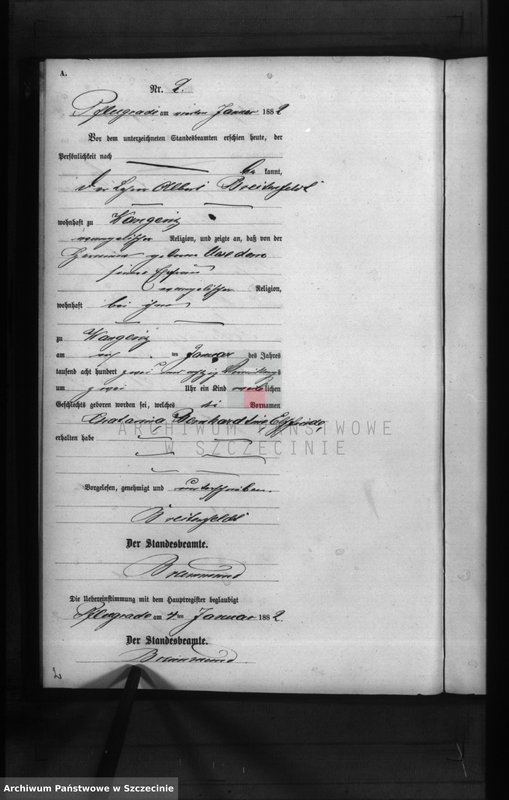 A.
Nr. 2.
Pflugrade am vierten Januar 1882
Vor dem unterzeichneten Standesbeamten erschien heute, der
Persönlichkeit nach
be kannt,
der Albert Breitenfeldt
wohnhaft zu Wangeritz
evangelischer Religion, und zeigte an, daß von der
Hermine geborene
seiner Ehefrau
evangelischer Religion,
wohnhaft bei ihm
zu Wangeritz
am ten Januar des Jahres
tausend acht hundert zwei und achtzig Vormittags
um zwei Uhr ein Kind weiblichen
Geschlechts geboren worden sei, welches die Vornamen
Bernhardine Elfriede
erhalten habe
ARCHIWUM PAŃSTWOWE
W SZCZECINIE
Vorgelesen, genehmigt und unterschrieben.
Breitenfeldt
Der Standesbeamte.
Die Uebereinstimmung mit dem Hauptregister beglaubigt
Pflugrade am 4ten Januar 1882.
Der Standesbeamte.
Archiwum Państwowe w Szczecinie